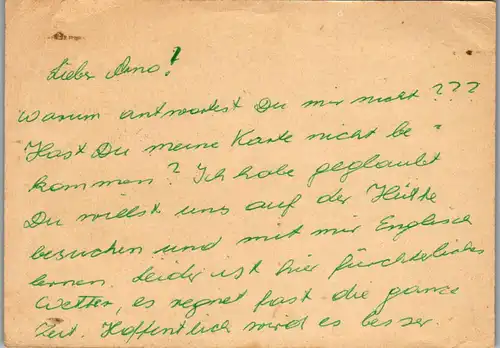 Lieber Arno!
Warum antwortest Du mir nicht???
Hast Du meine Karte nicht be-
kommen? Ich habe geglaubt
Du willst uns auf der Hütte
besuchen und mit mir Englisch
lernen. Leider ist hier fürchterliches
Wetter, es regnet fast die ganze
Zeit. Hoffentlich wird es besser.